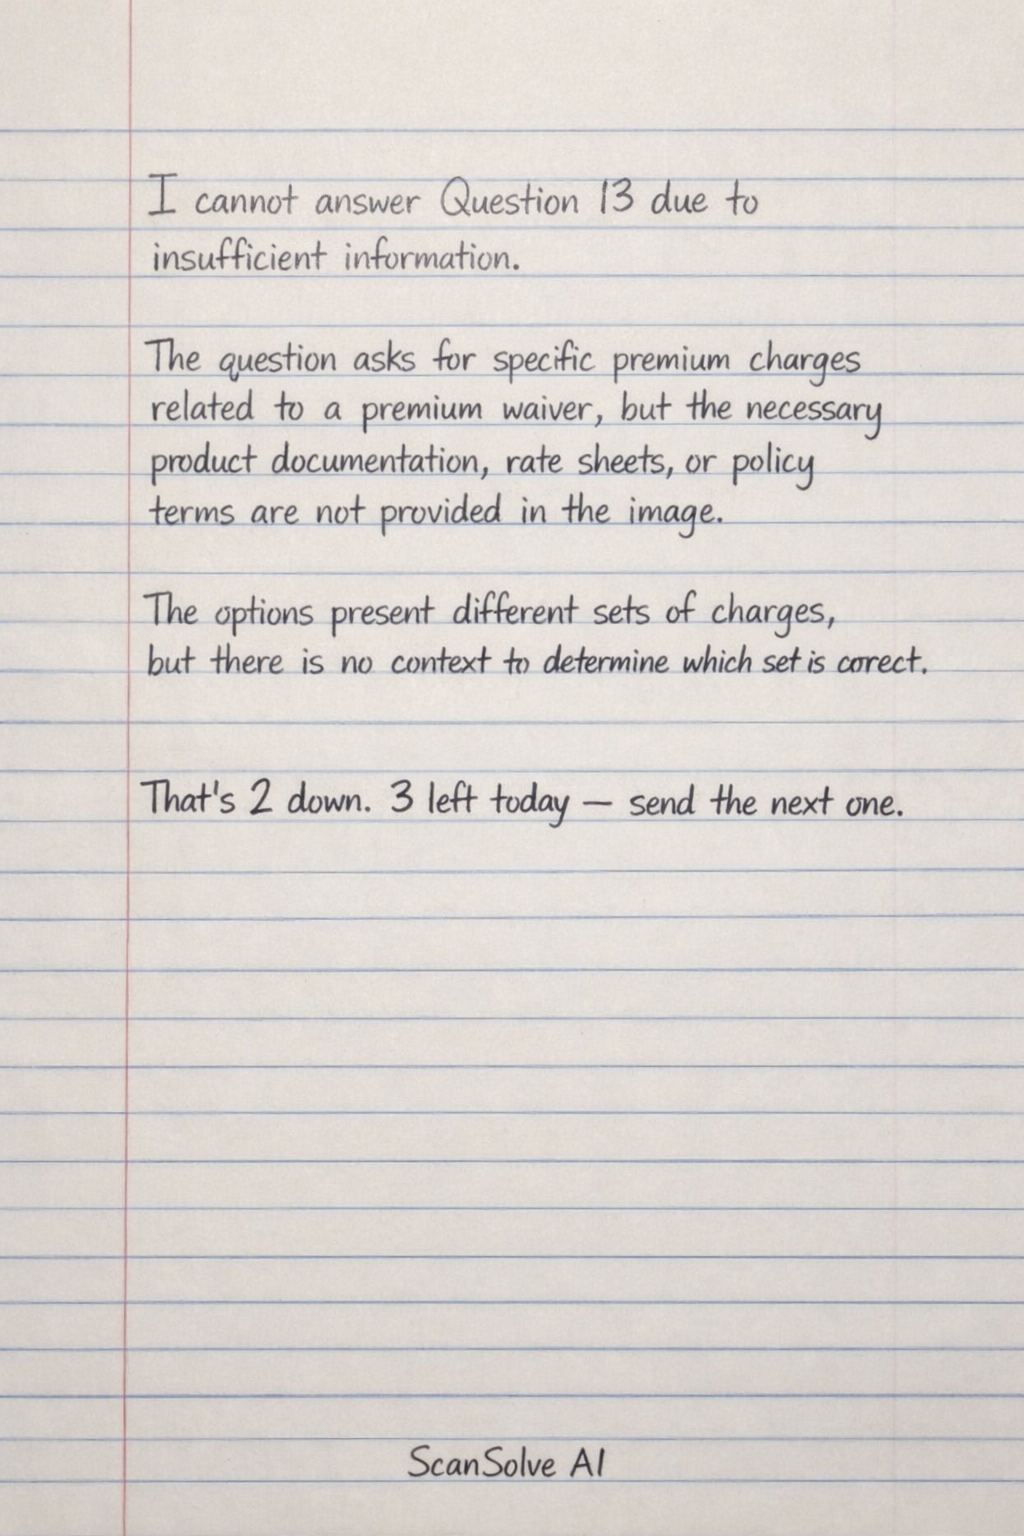 I cannot answer Question 13 due to
insufficient information.
The question asks for specific premium charges
related to a premium waiver, but the necessary
product documentation, rate sheets, or policy
terms are not provided in the image.
The options present different sets of charges,
but there is no context to determine which set is correct.
That's 2 down. 3 left today — send the next one.
ScanSolve AI